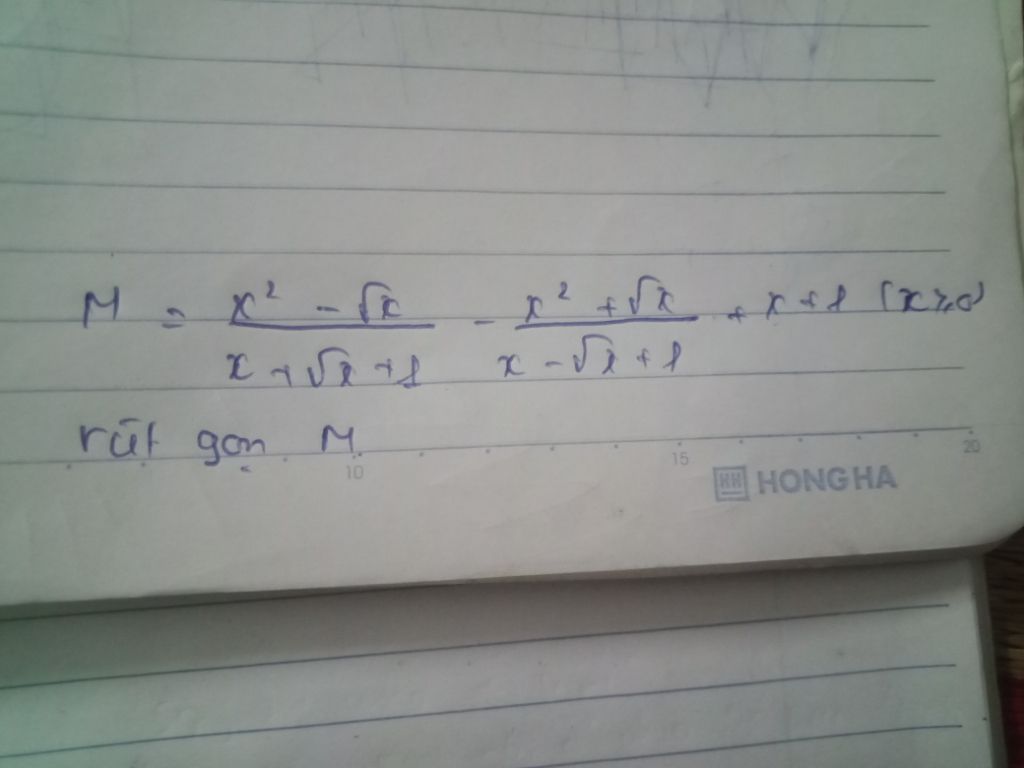 M = \frac{x^2 - \sqrt{x}}{x + \sqrt{x} + 1} - \frac{x^2 + \sqrt{x}}{x - \sqrt{x} + 1} + x + 1 (x ≥ 0)
rút gọn M
10 15 20
HONG HA